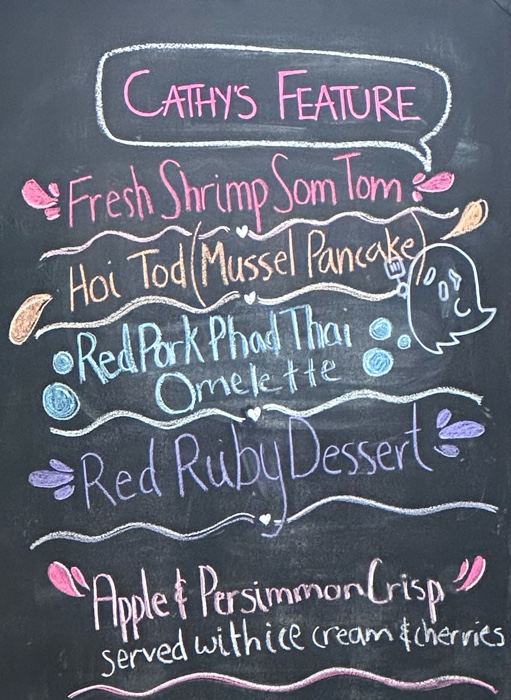 CATHY'S FEATURE
Fresh Shrimp Som Tom
Hoi Tod (Mussel Pancake)
Red Pork Phad Thai
Omelette
Red Ruby Dessert
Apple & Persimmon Crisp
served with ice cream & cherries